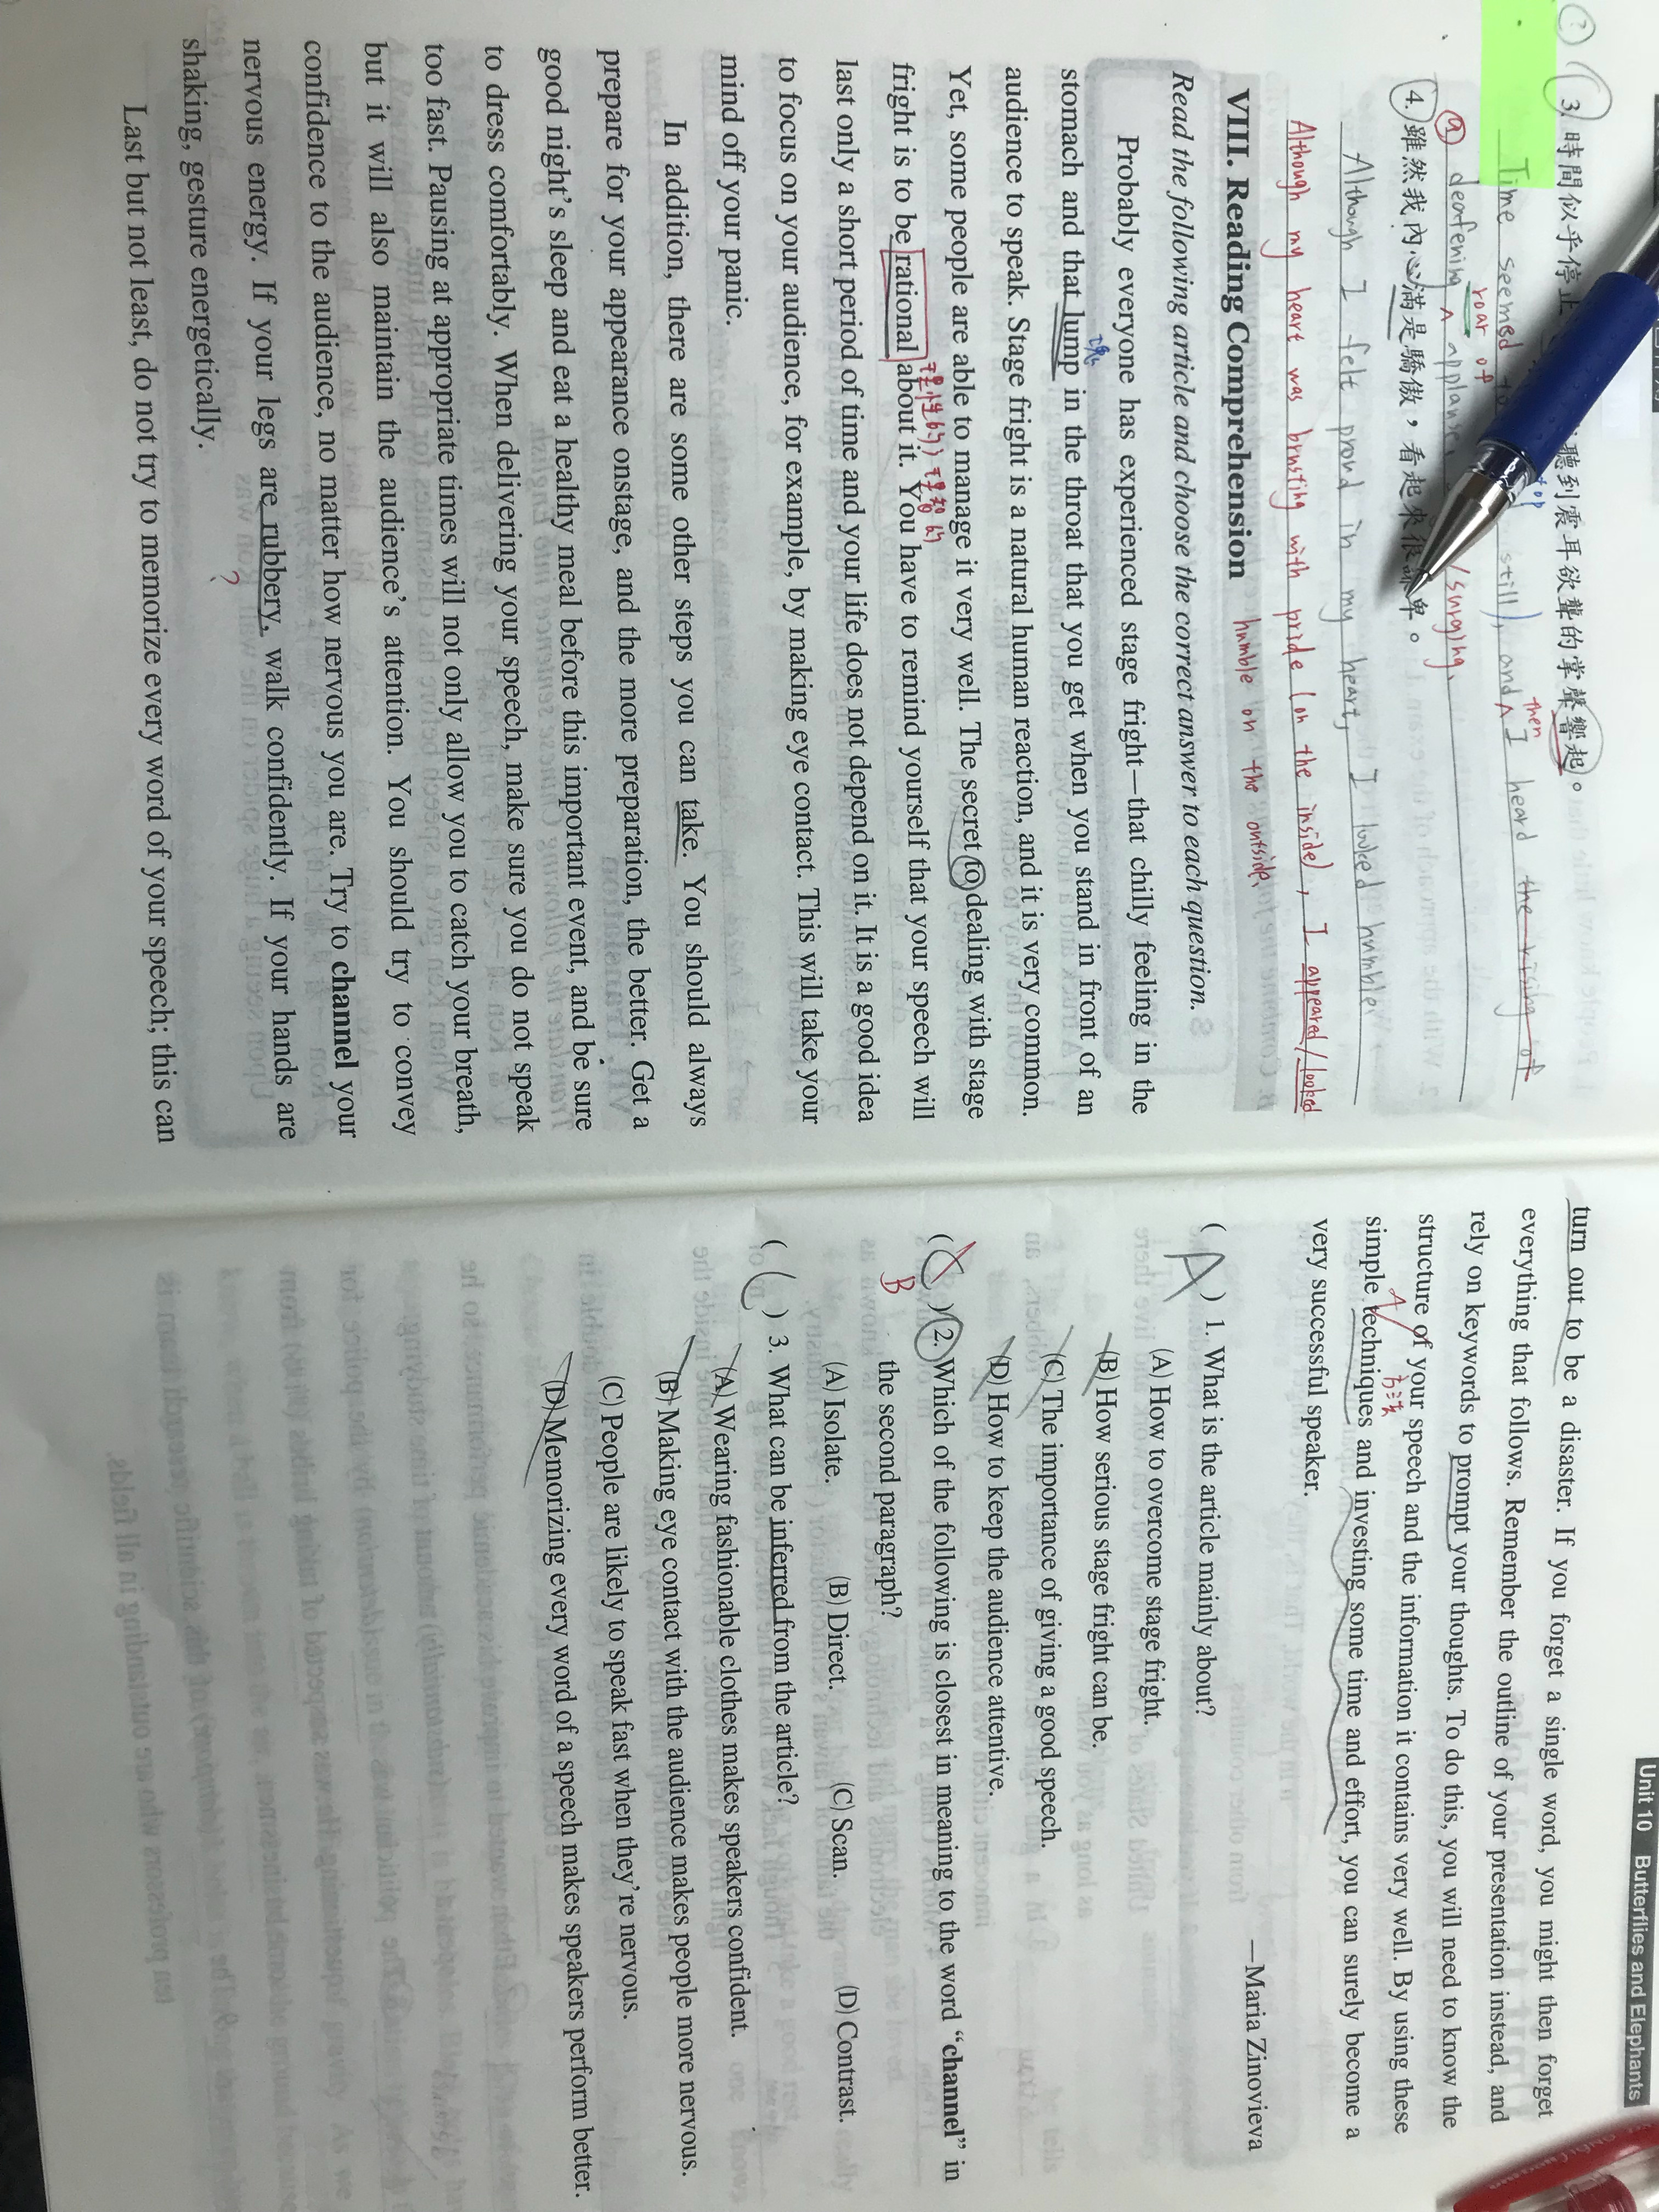 3. 時間似乎停止 聽到震耳欲聾的掌聲響起。
Time seemed to still), and then I heard the rising of
deafening roar of applause. /surging.
4. 雖然我內心滿是驕傲，看起來很 卑。
Although I felt proud in my heart, I looked humble.
Although my heart was brusting with pride (on the inside), I appeared/looked
humble on the outside.
VIII. Reading Comprehension
Read the following article and choose the correct answer to each question.
Probably everyone has experienced stage fright—that chilly feeling in the
stomach and that lump in the throat that you get when you stand in front of an
audience to speak. Stage fright is a natural human reaction, and it is very common.
Yet, some people are able to manage it very well. The secret to dealing with stage
fright is to be rational about it. You have to remind yourself that your speech will
last only a short period of time and your life does not depend on it. It is a good idea
to focus on your audience, for example, by making eye contact. This will take your
mind off your panic.
In addition, there are some other steps you can take. You should always
prepare for your appearance onstage, and the more preparation, the better. Get a
good night's sleep and eat a healthy meal before this important event, and be sure
to dress comfortably. When delivering your speech, make sure you do not speak
too fast. Pausing at appropriate times will not only allow you to catch your breath,
but it will also maintain the audience's attention. You should try to convey
confidence to the audience, no matter how nervous you are. Try to channel your
nervous energy. If your legs are rubbery, walk confidently. If your hands are
shaking, gesture energetically.
?
Last but not least, do not try to memorize every word of your speech; this can
Unit 10 Butterflies and Elephants
turn out to be a disaster. If you forget a single word, you might then forget
everything that follows. Remember the outline of your presentation instead, and
rely on keywords to prompt your thoughts. To do this, you will need to know the
structure of your speech and the information it contains very well. By using these
simple techniques and investing some time and effort, you can surely become a
very successful speaker.
—Maria Zinovieva
( A ) 1. What is the article mainly about?
(A) How to overcome stage fright.
(B) How serious stage fright can be.
(C) The importance of giving a good speech.
(D) How to keep the audience attentive.
( C ) 2. Which of the following is closest in meaning to the word “channel” in
B
the second paragraph?
(A) Isolate. (B) Direct. (C) Scan. (D) Contrast.
( C ) 3. What can be inferred from the article?
(A) Wearing fashionable clothes makes speakers confident.
(B) Making eye contact with the audience makes people more nervous.
(C) People are likely to speak fast when they're nervous.
(D) Memorizing every word of a speech makes speakers perform better.